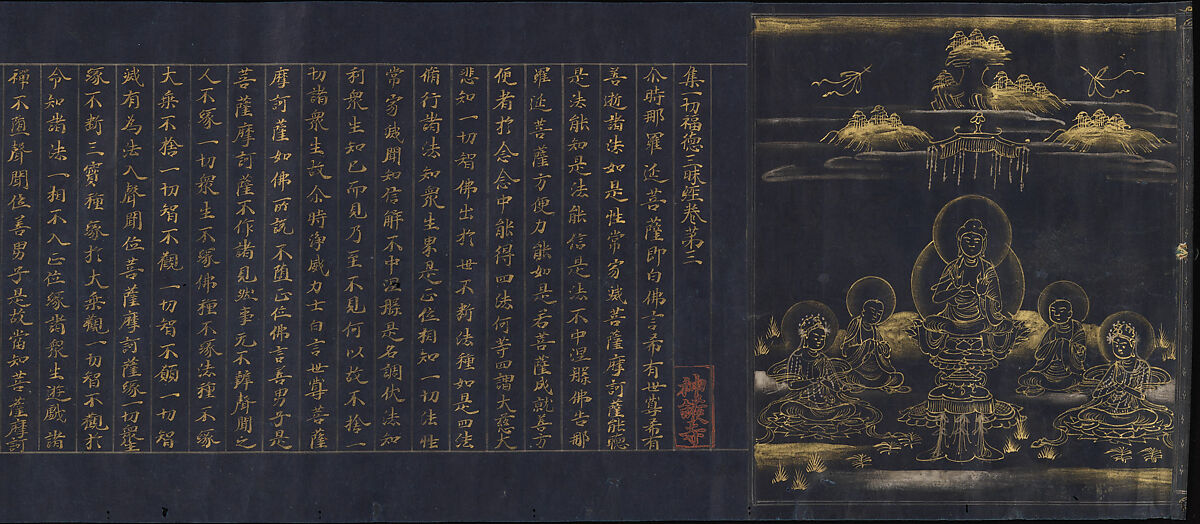 集一切福德三昧經卷第三
尒時那羅延菩薩即白佛言希有世尊希有
善逝諸法如是性常寂滅菩薩摩訶薩能聽
是法能知是法能信是法不中涅槃佛告那
羅延菩薩方便力能如是若菩薩成就善方
便者於念念中能得四法何等四謂大慈大
悲知一切智佛出於世不斷法種如是四法
脩行諸法知衆生界是正位相知一切法性
常寂滅聞知信解不中涅槃是名調伏法知
利衆生知已而見乃至不見何以故不捨一
切諸衆生故尒時淨威力士白言世尊菩薩
摩訶薩如佛所說不墮正位佛言善男子是
菩薩摩訶薩不作諸見然事无不辦聲聞之
人不緣一切衆生不緣佛種不緣法種不緣
大乘不捨一切智不觀一切智不願一切智
滅有為法入聲聞位菩薩摩訶薩緣一切衆生
緣不斷三寶種緣於大乘觀一切智不觀於
令知諸法一相不入正位緣諸衆生遊戲諸
禪不墮聲聞位善男子是故當知菩薩摩訶
神護寺